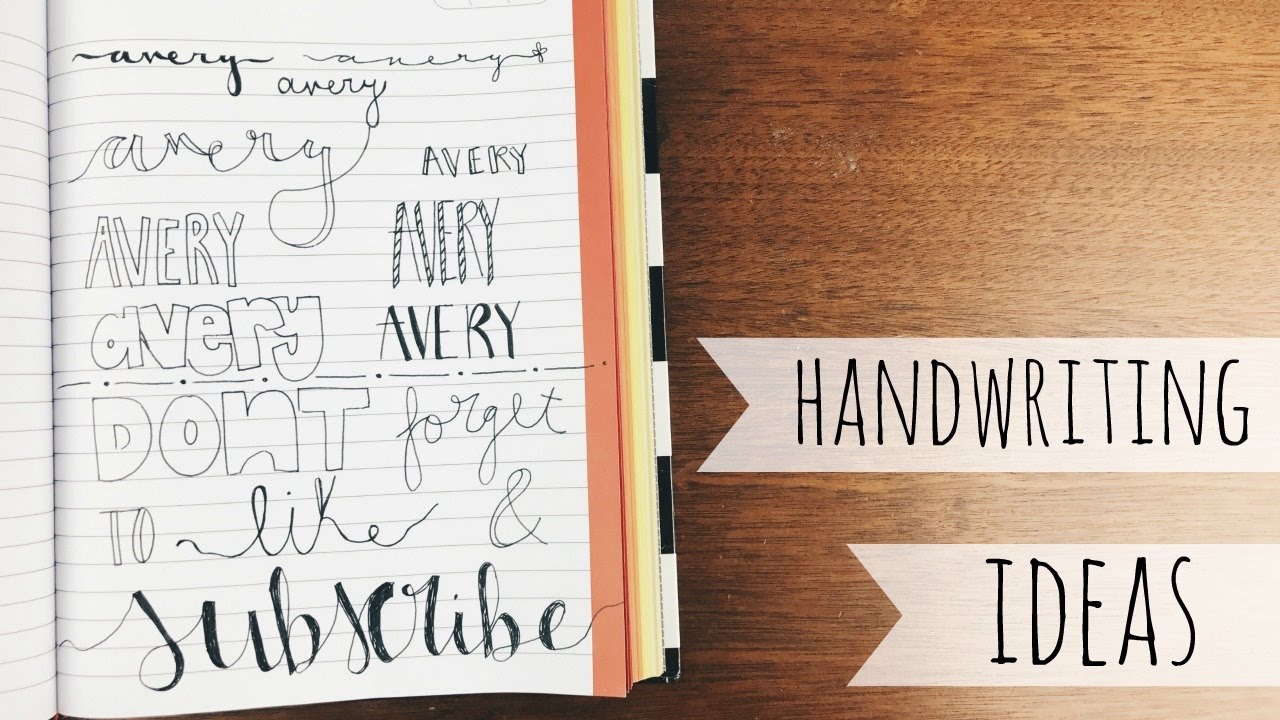 avery avery
avery
avery
AVERY
AVERY AVERY
avery AVERY
DONT forget
TO like &
subscribe
HANDWRITING
IDEAS